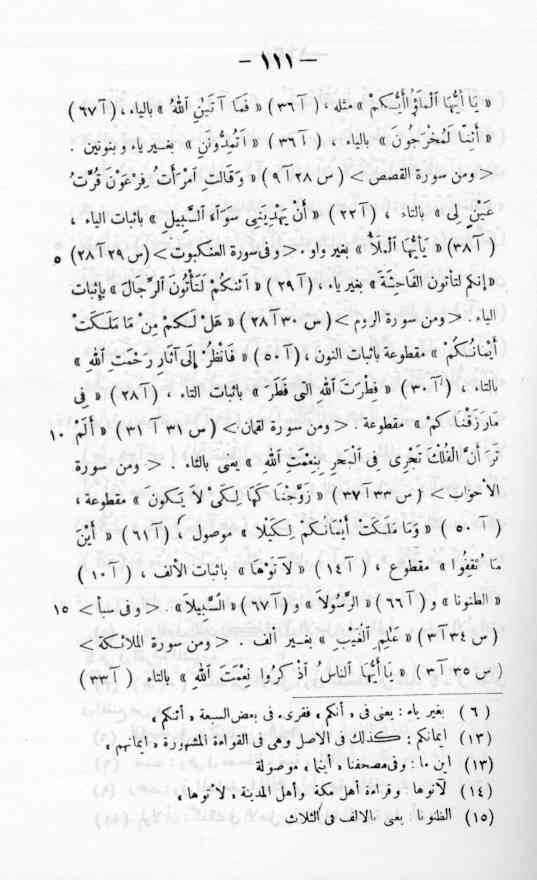 – ١١١ –
« يَا أَيُّهَا الْمَلَؤُا أَيُّكُمْ » مثله ، ( آ ٣٦ ) « فَمَا آتَيْنِ اللّهُ » بالياء ، ( آ ٦٧ )
« أَئِنَّا لَمُخْرَجُونَ » بالياء ، ( آ ٣٦ ) « أَتُمِدُّونَنِ » بغير ياء وبنونين .
< ومن سورة القصص > ( س ٢٨ آ ٩ ) « وَقَالَتِ امْرَأَتُ فِرْعَوْنَ قُرَّتُ
عَيْنٍ لِى » بالتاء ، ( آ ٢٢ ) « أَنْ يَهْدِيَنِى سَوَآءَ السَّبِيلِ » باثبات الياء ،
( آ ٣٨ ) « يَأَيُّهَا الْمَلَأُ » بغير واو . < وفى سورة العنكبوت > ( س ٢٩ آ ٢٨ ) ٥
« إنكم لتأتون الفَاحِشَةَ » بغير ياء ، ( آ ٢٩ ) « أَئنكُمْ لَتَأْتُونَ الرِّجَالَ » بإثبات
الياء . < ومن سورة الروم > ( س ٣٠ آ ٢٨ ) « هَلْ لَكُمْ مِنْ مَا مَلَكَتْ
أَيْمَانُكُمْ » مقطوعة باثبات النون ، ( آ ٥٠ ) « فَانْظُرْ إِلَى آثَارِ رَحْمَتِ اللّهِ »
بالتاء ، ( آ ٣٠ ) « فِطْرَتَ اللّهِ الَّتِى فَطَرَ » باثبات التاء ، ( آ ٢٨ ) « فِى
مَا رَزَقْنَاكُمْ » مقطوعة . < ومن سورة لقمان > ( س ٣١ آ ٣١ ) « أَلَمْ ١٠
تَرَ أَنَّ الْفُلْكَ تَجْرِى فِى الْبَحْرِ بِنِعْمَتِ اللّهِ » يعنى بالتاء . < ومن سورة
الأحزاب > ( س ٣٣ آ ٣٧ ) « زَوَّجْنَاكَهَا لِكَىْ لاَ يَكُونَ » مقطوعة ،
( آ ٥٠ ) « وَمَا مَلَكَتْ أَيْمَانُكُمْ لِكَيْلا » موصول ، ( آ ٦١ ) « أَيْنَ
مَا ثُقِفُوا » مقطوع ، ( آ ١٤ ) « لآتَوْهَا » باثبات الألف ، ( آ ١٠ )
« الظنونا » و ( آ ٦٦ ) « الرَّسُولاَ » و ( آ ٦٧ ) « السَّبِيلاَ » . < وفى سبأ > ١٥
( س ٣٤ آ ٣ ) « عَلِمِ الْغَيْبِ » بغير ألف . < ومن سورة الملائكة >
( س ٣٥ آ ٣ ) « يَا أَيُّهَا الناسُ اذْكُرُوا نِعْمَتَ اللّهِ » بالتاء ( آ ٣٣ )
( ٦ ) بغير ياء : يعنى فى « أنكم » فقرىء فى بعض السبعة « أئنكم »
( ١٣ ) ايمانكم : كذلك فى الاصل وهى فى القراءة المشهورة « ايمانهم »
( ١٣ ) اين ما : وفى مصحفنا « أينما » موصولة
( ١٤ ) لآتوها : وقراءة أهل مكة وأهل المدينة « لاتوها »
( ١٥ ) الظنونا : يعنى بالالف فى الثلاث